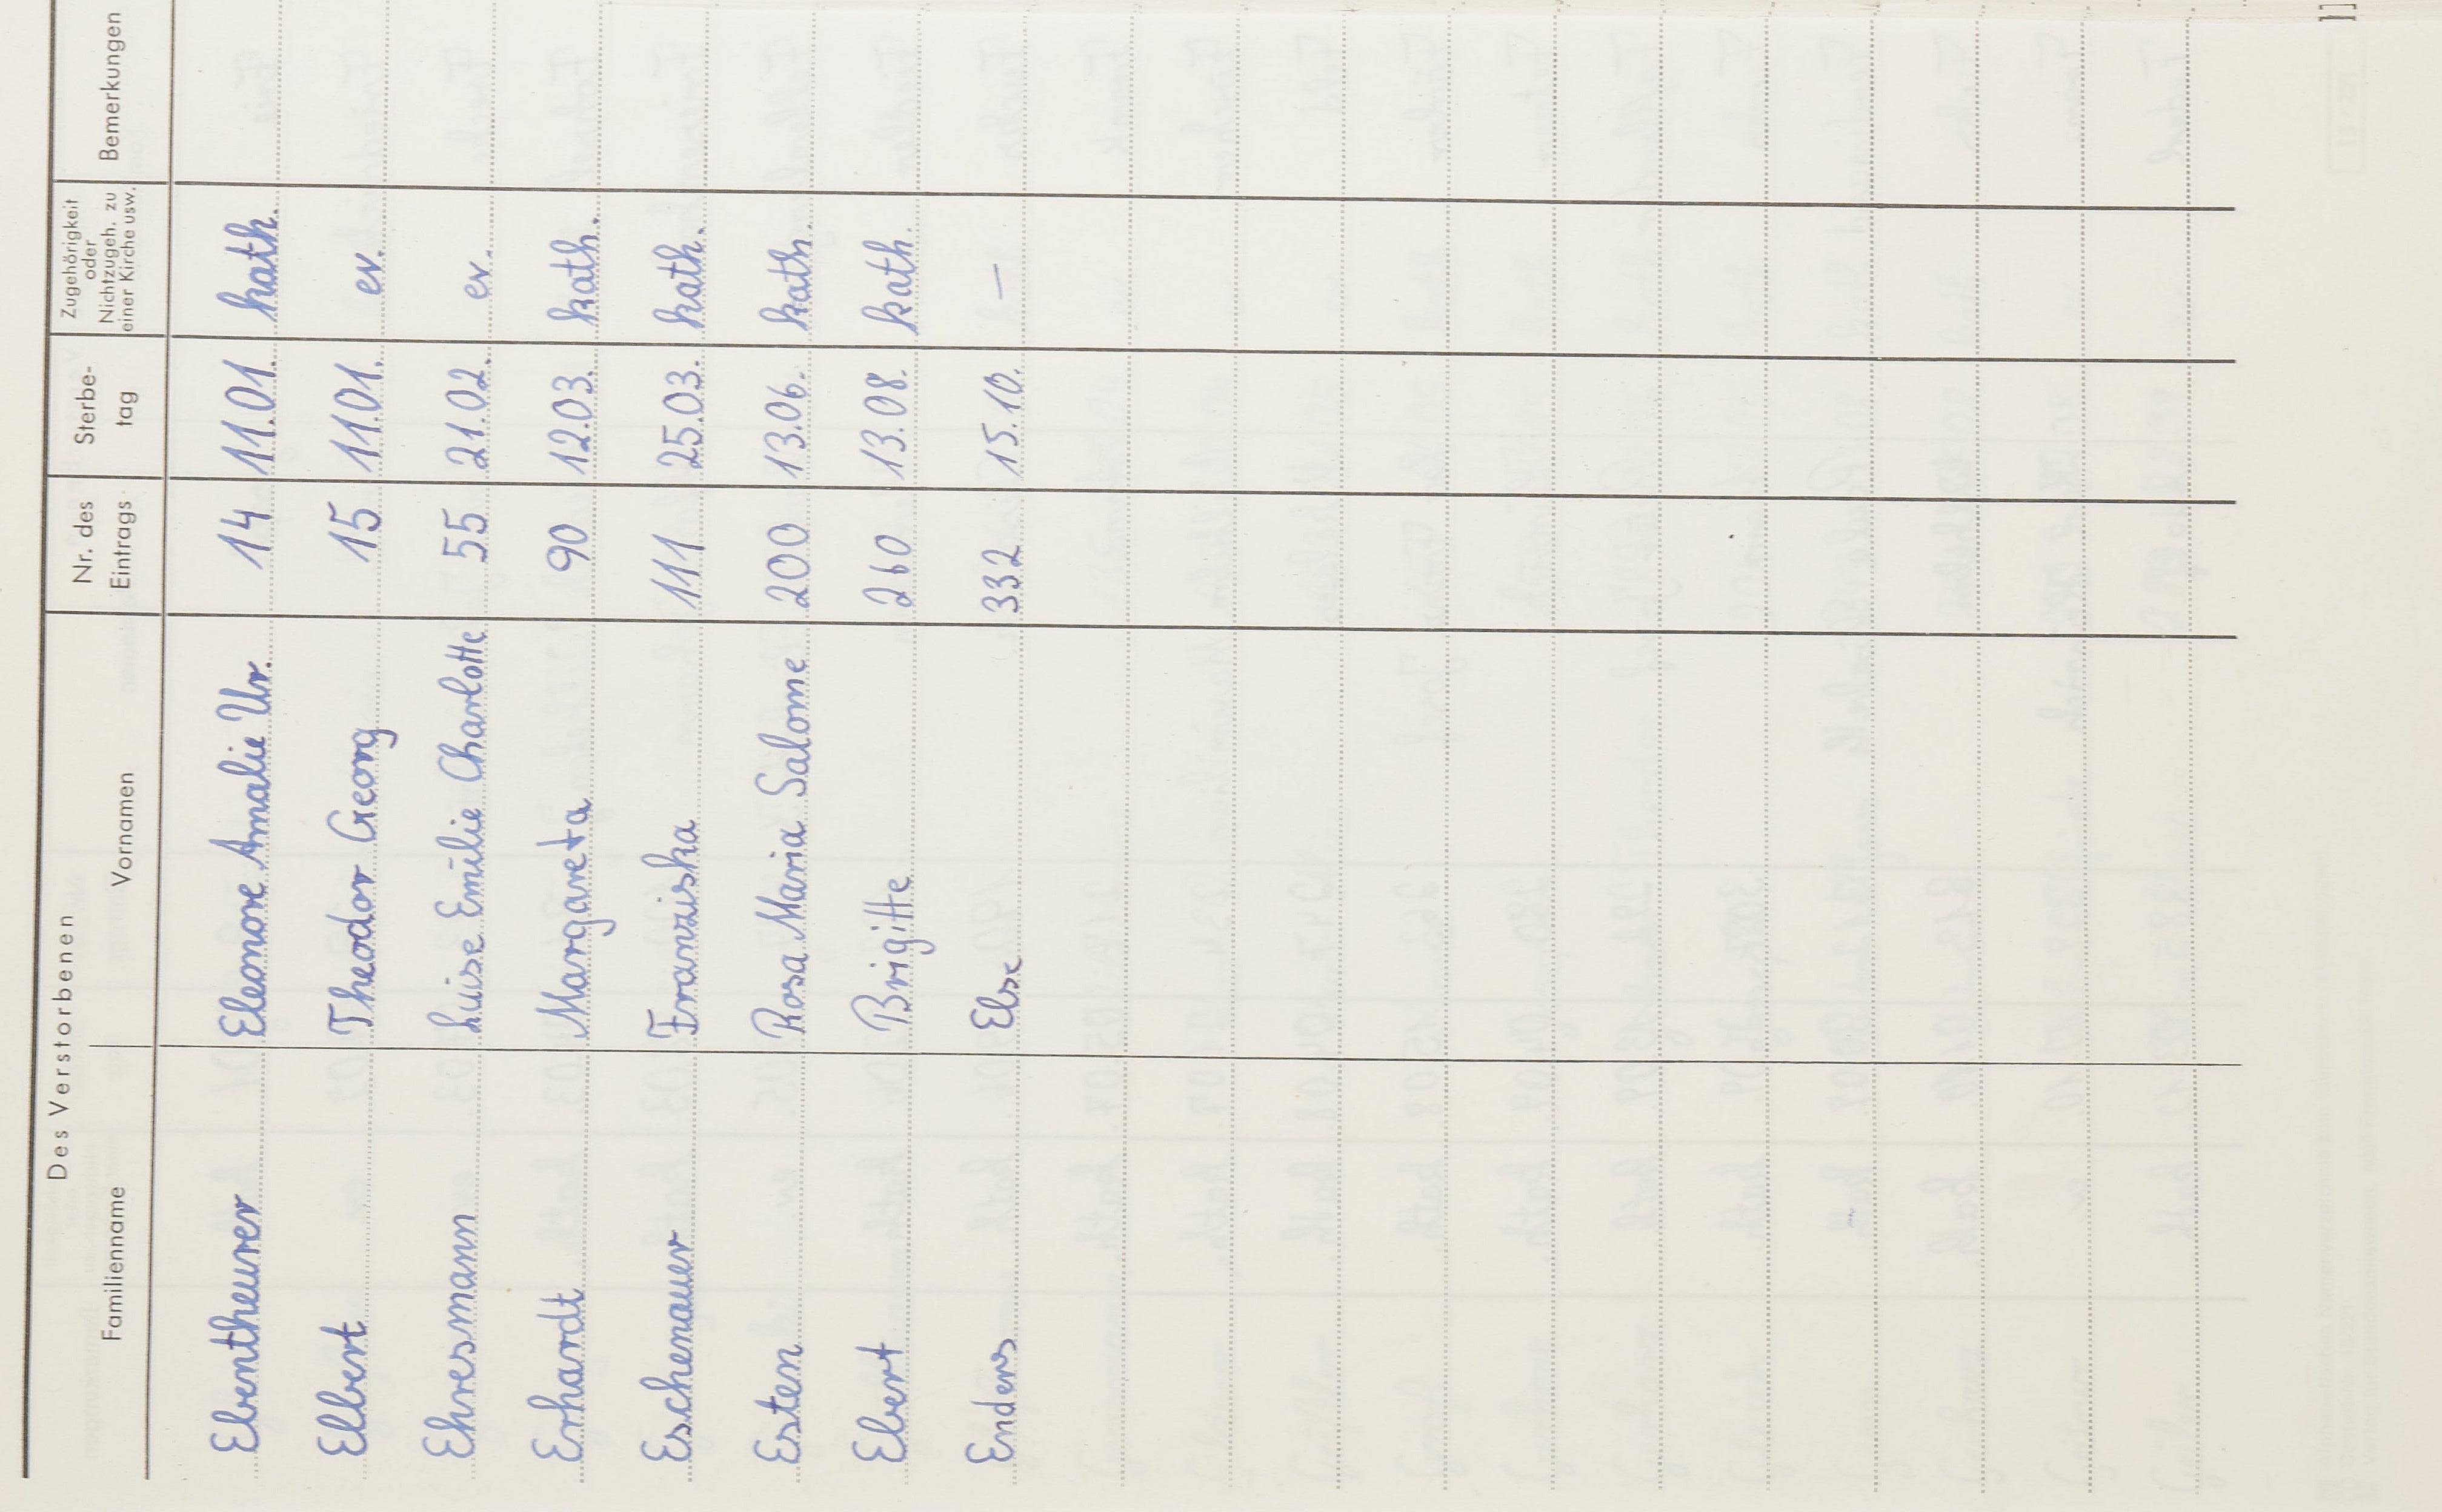 Des Verstorbenen
Familienname Vornamen
Nr. des Eintrags
Sterbe-
tag
Zugehörigkeit
oder
Nichtzugeh. zu
einer Kirche usw.
Bemerkungen
Ebentheurer Eleonore Amalie Ur. 14 11.01. kath.
Elbert Theodor Georg 15 11.01. ev.
Ehresmann Luise Emilie Charlotte 55 21.02. ev.
Erhardt Margareta 90 12.03. kath.
Eschenauer Franziska 111 25.03. kath.
Esten Rosa Maria Salome 200 13.06. kath.
Ebert Brigitte 260 13.08. kath.
Enders Else 332 15.10. —